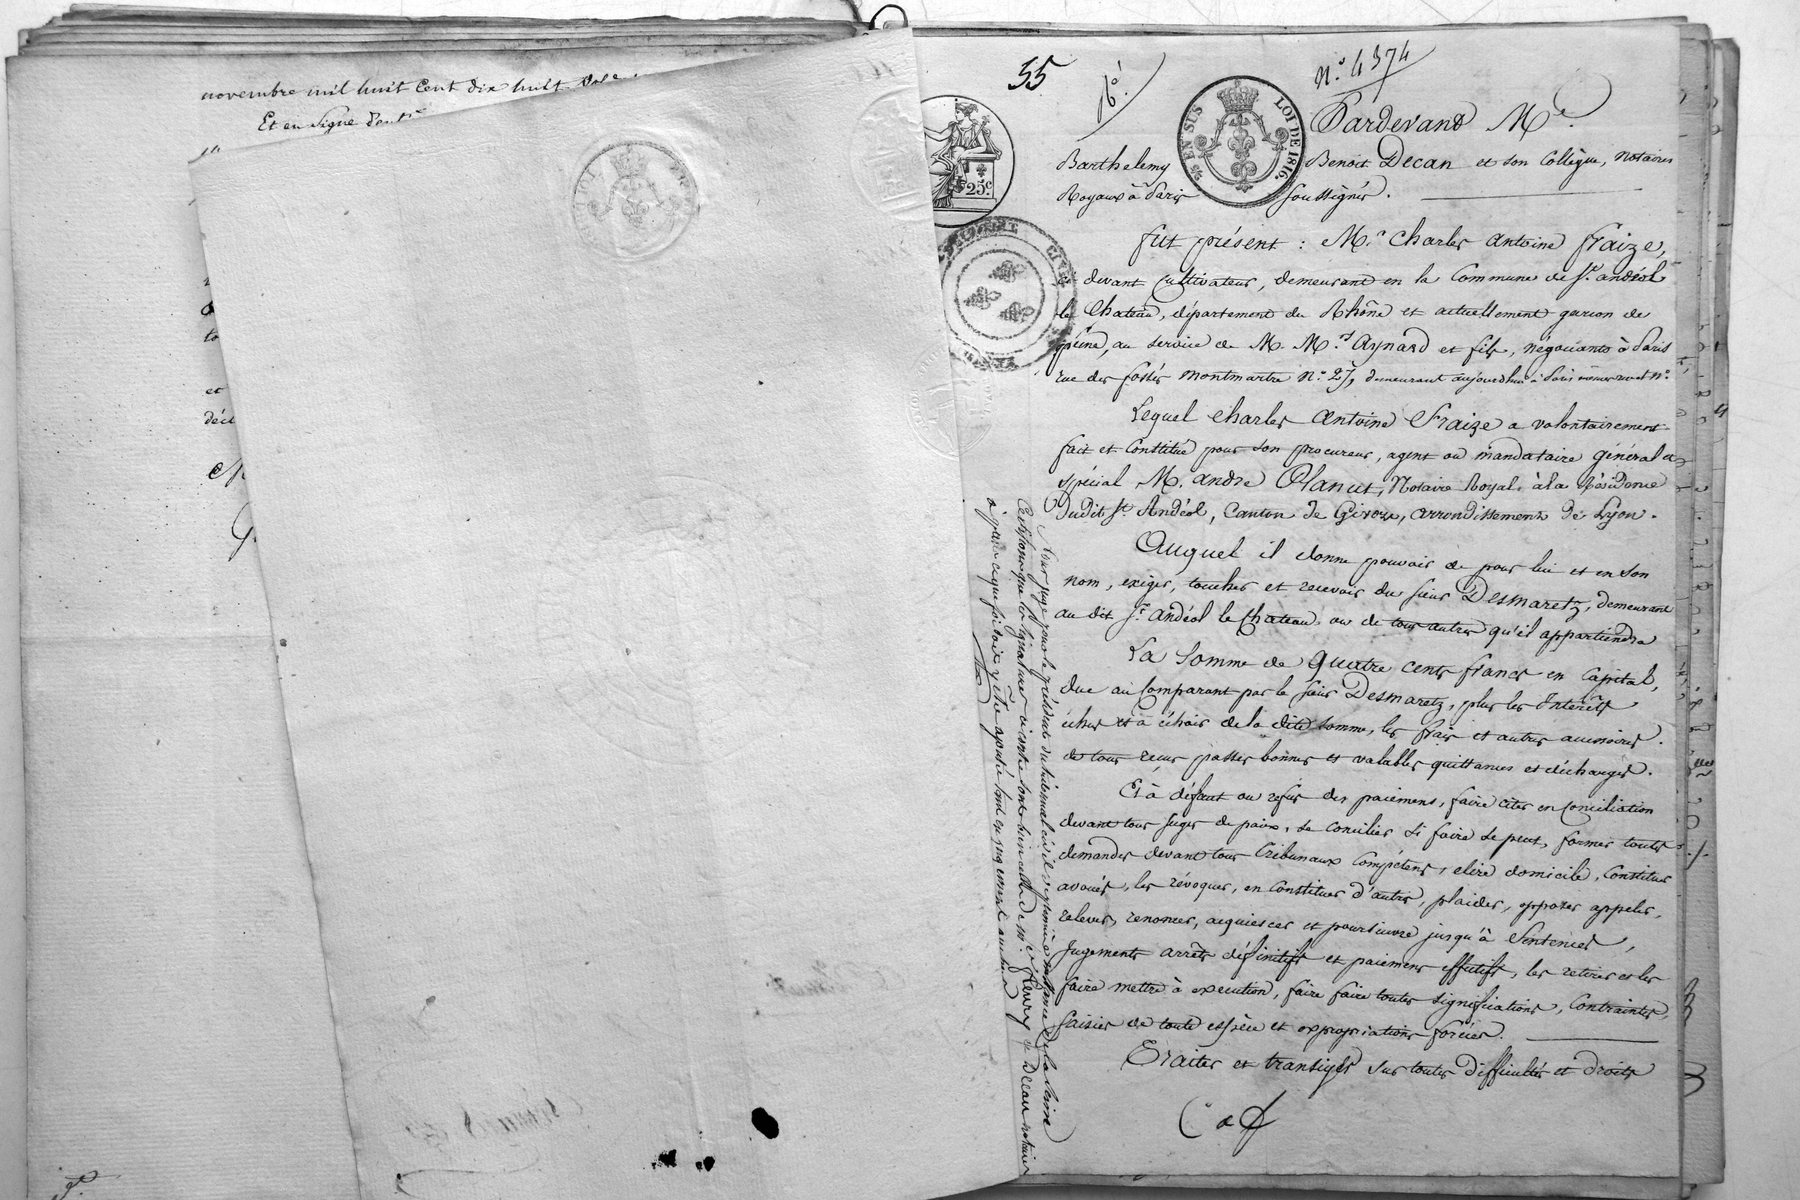 novembre mil huit Cent dix huit
Et en signe
et
décl
55
N.º 4374
5/6 EN SUS
LOI DE 1816.
25.c
Pardevant Me.
Barthelemy Benoit Decan et son Collègue, Notaires
Royaux à Paris soussignés.
fut présent : M.r Charles Antoine Fraize,
devant Cultivateur, demeurant en la Commune de St. andéol
le Chateau, département du Rhône et actuellement garcon de
peine, au service de M. M.rs Aynard et fils, négociants à Paris
rue des fossés montmartre N.º 27, demeurant aujourdhui à Paris mêmes rue et N.º
Lequel Charles Antoine Fraize a volontairement
fait et Constitué pour son procureur, agent ou mandataire général et
spécial M. andré Planut, Notaire Royal, à la Résidence
dudit St. Andéol, Canton de Givors, arrondissement de Lyon.
Auquel il donne pouvoir de pour lui et en son
nom, exiger, toucher et recevoir du sieur Desmaretz, demeurant
au dit St. Andéol le Chateau, ou de tous autres qu'il appartiendra
La Somme de Quatre cents francs en Capital,
due au Comparant par le sieur Desmaretz, plus les Intérêts
échus et à échoir de la dite somme, les frais et autres accessoires.
de tous recus passer bonnes et valables quittances et décharges.
Et à défaut ou refus des paiemens, faire citer en Conciliation
devant tous Juges de paix, se concilier si faire se peut, former toutes
demandes devant tous Tribunaux Compétens, elire domicile, Constituer
avoués, les révoquer, en Constituer d'autres, plaider, opposer appeler,
relever, renoncer, acquiescer et poursuivre jusqu'à Sentences,
Jugements arrêts définitifs et paiemens effectifs, les retirer et les
faire mettre à execution, faire faire toutes significations, Contraintes,
saisies de toute espèce et expropriations forcées.
Traiter et transiger sur toutes difficultés et droits
Nous juge pour le président du tribunal civil de première instance de la Seine
Certifions que les signatures ci contre sont bien celles de Me. Fleury & Decan notaires
à paris ce que foi doit y être ajoutée tant en jugement que hors